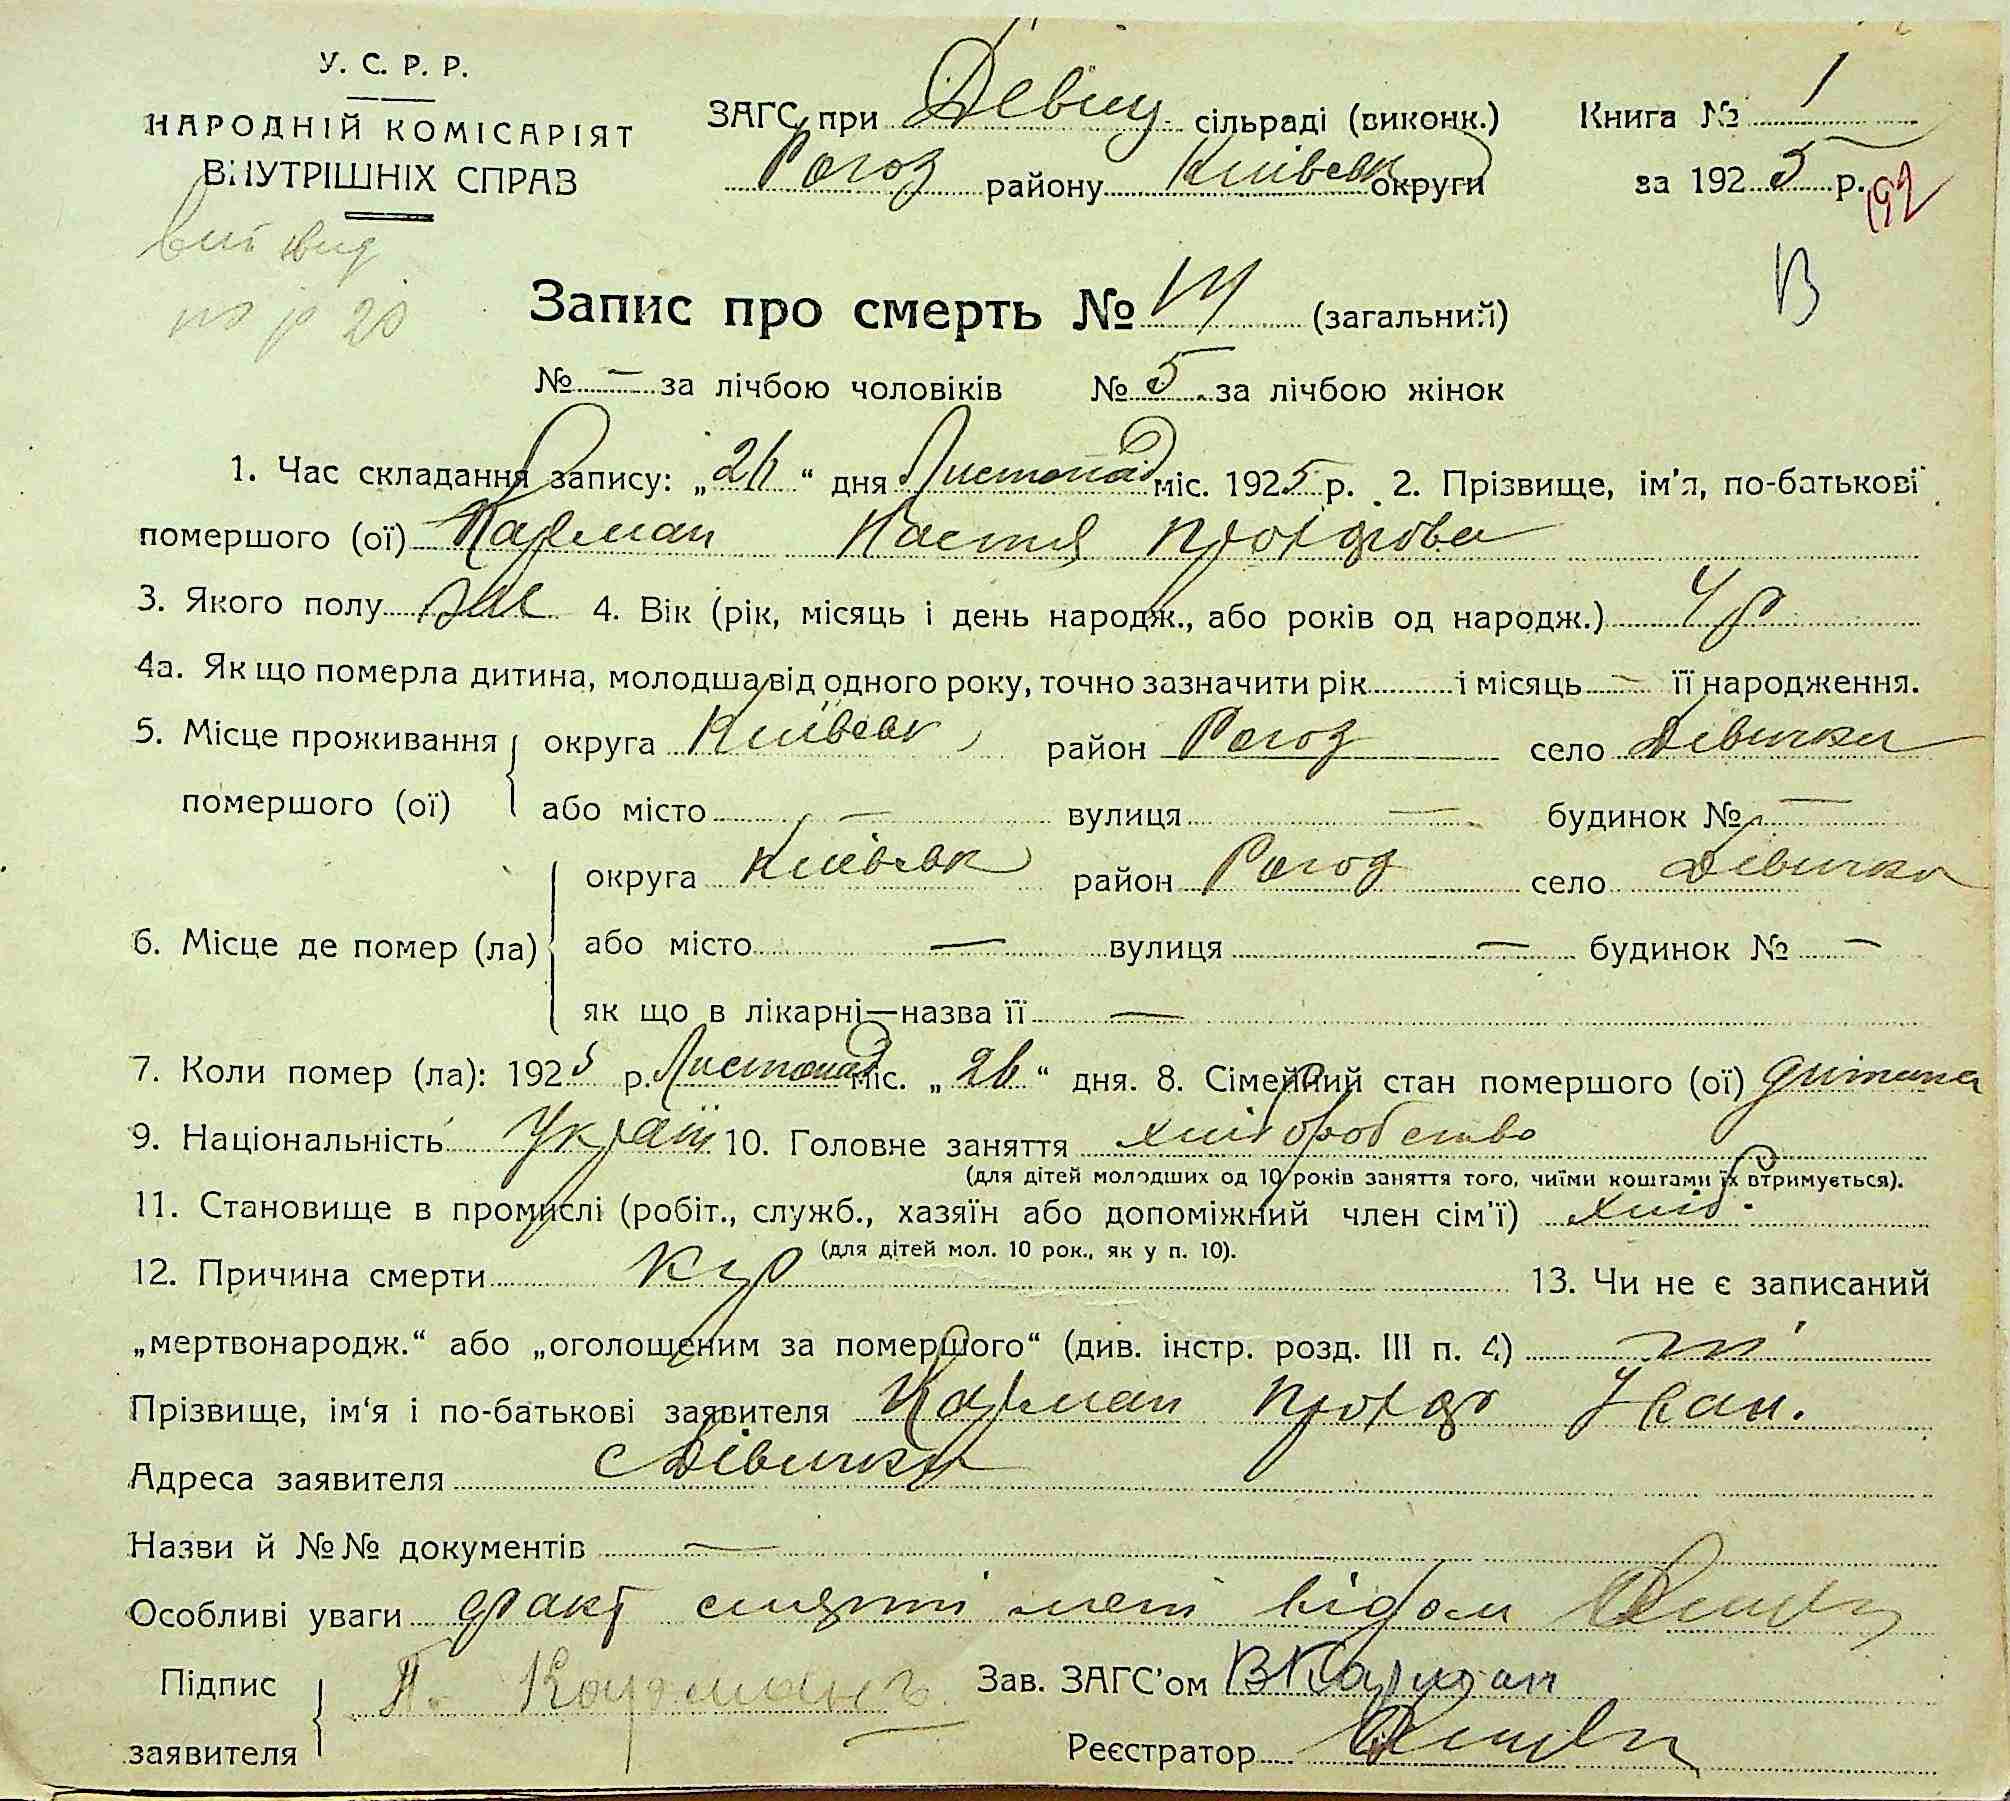 У. С. Р. Р.
НАРОДНІЙ КОМІСАРІЯТ
ВНУТРІШНІХ СПРАВ
ЗАГС при Девиц сільраді (виконк.)
Рогоз району Київськ округи
Книга № 1
за 1925 р.
192
В
Запис про смерть № (загальний)
№ — за лічбою чоловіків № 5 за лічбою жінок
1. Час складання запису: „ “ дня Листопад міс. 1925 р. 2. Прізвище, ім'я, по-батькові
помершого (ої) Карман Настя Прохорова
3. Якого полу жін 4. Вік (рік, місяць і день народж., або років од народж.) 4 р
4а. Як що померла дитина, молодша від одного року, точно зазначити рік і місяць — її народження.
5. Місце проживання помершого (ої) округа Київськ район Рогоз село Дівички
або місто — вулиця — будинок № —
6. Місце де помер (ла) округа Київськ район Рогоз село Дівички
або місто — вулиця — будинок № —
як що в лікарні—назва її —
7. Коли помер (ла): 1925 р. Листопад міс. „26“ дня. 8. Сімейний стан помершого (ої) дитина
9. Національність Україн 10. Головне заняття хліборобство
(для дітей молодших од 10 років заняття того, чиїми коштами їх втримується).
11. Становище в промислі (робіт., служб., хазяїн або допоміжний член сім'ї) хліб.
(для дітей мол. 10 рок., як у п. 10).
12. Причина смерти кур 13. Чи не є записаний
„мертвонародж.“ або „оголошеним за помершого“ (див. інстр. розд. III п. 4) ні
Прізвище, ім'я і по-батькові заявителя Карман Прохор Іван.
Адреса заявителя с Дівички
Назви й №№ документів —
Особливі уваги факт смерті мені відом
Підпис заявителя П. Карманъ
Зав. ЗАГС'ом В Карман
Реєстратор